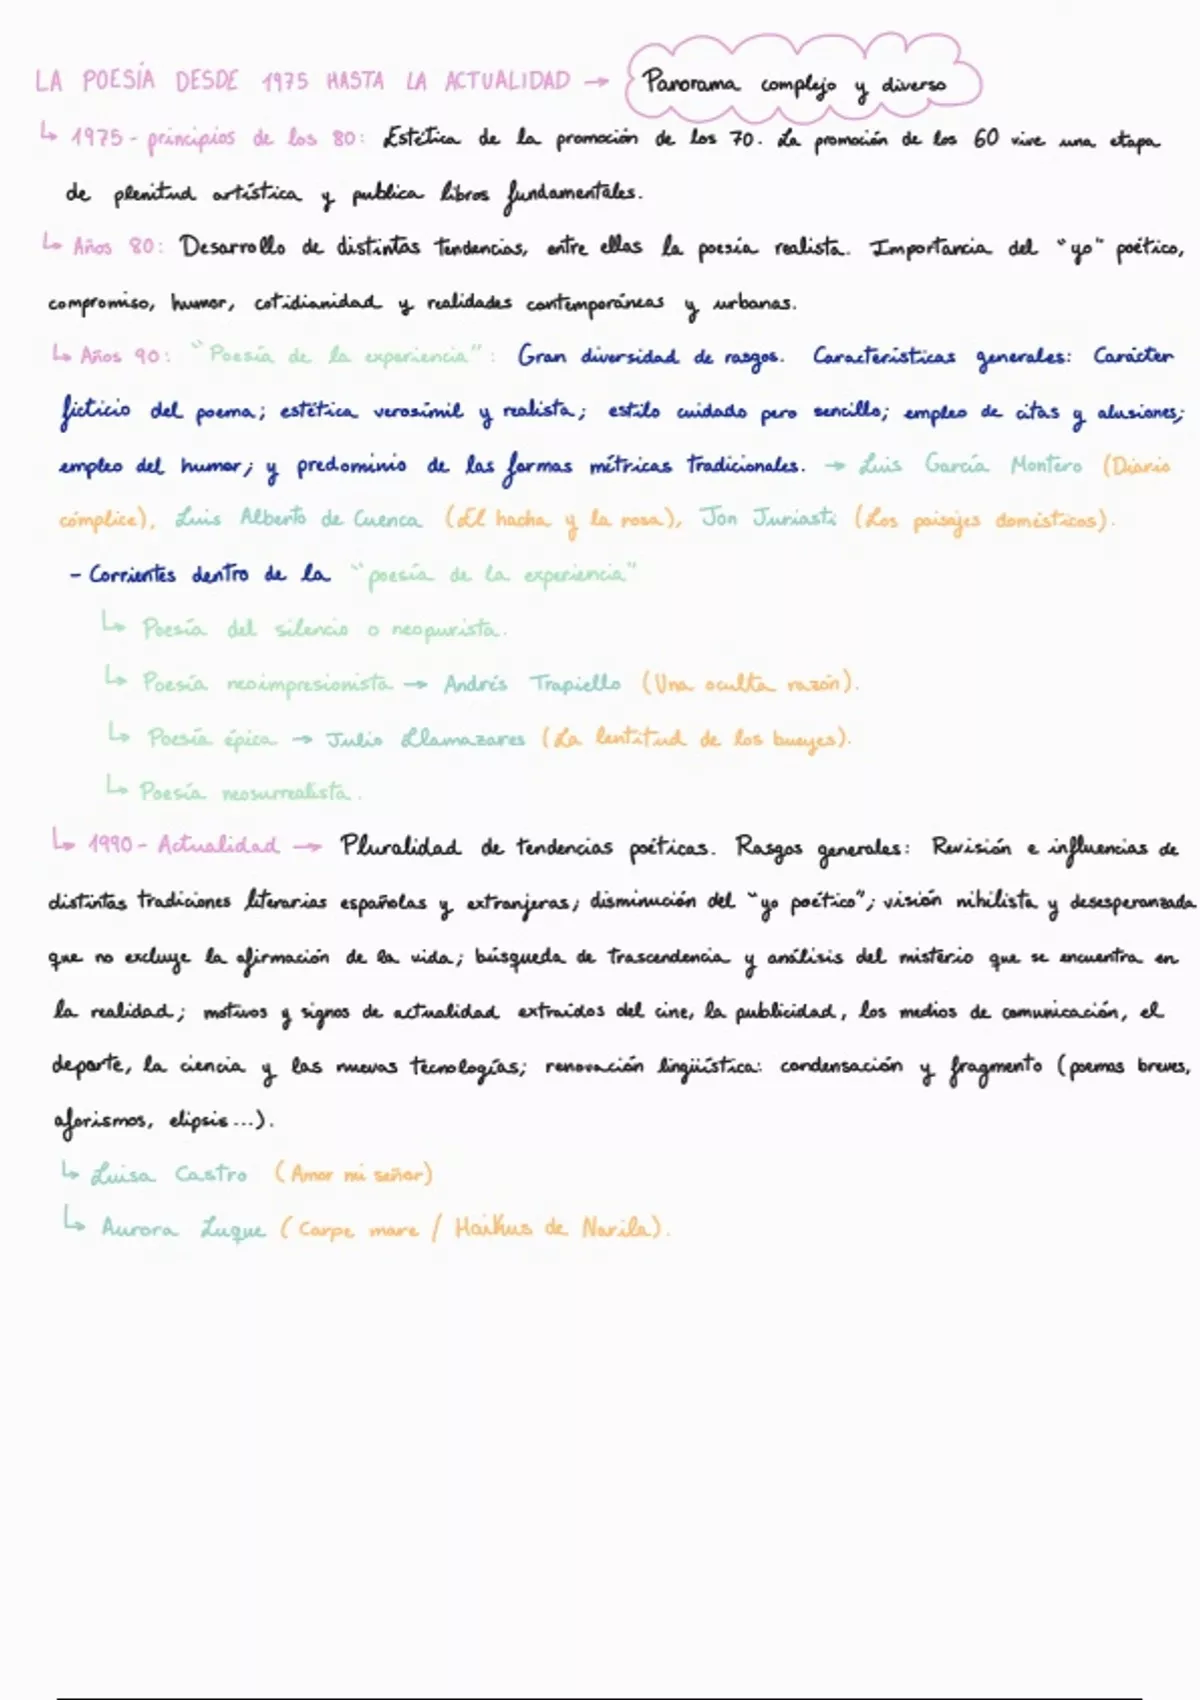 LA POESÍA DESDE 1975 HASTA LA ACTUALIDAD → Panorama complejo y diverso
↳ 1975 - principios de los 80: Estética de la promoción de los 70. La promoción de los 60 vive una etapa
de plenitud artística y publica libros fundamentales.
↳ Años 80: Desarrollo de distintas tendencias, entre ellas la poesía realista. Importancia del "yo" poético,
compromiso, humor, cotidianidad y realidades contemporáneas y urbanas.
↳ Años 90: "Poesía de la experiencia": Gran diversidad de rasgos. Características generales: Carácter
ficticio del poema; estética verosímil y realista; estilo cuidado pero sencillo; empleo de citas y alusiones;
empleo del humor; y predominio de las formas métricas tradicionales. → Luis García Montero (Diario
cómplice), Luis Alberto de Cuenca (El hacha y la rosa), Jon Juriasti (Los paisajes domésticos).
- Corrientes dentro de la "poesía de la experiencia"
↳ Poesía del silencio o neopurista.
↳ Poesía neoimpresionista → Andrés Trapiello (Una oculta razón).
↳ Poesía épica → Julio Llamazares (La lentitud de los bueyes).
↳ Poesía neosurrealista.
↳ 1990 - Actualidad → Pluralidad de tendencias poéticas. Rasgos generales: Revisión e influencias de
distintas tradiciones literarias españolas y extranjeras; disminución del "yo poético"; visión nihilista y desesperanzada
que no excluye la afirmación de la vida; búsqueda de trascendencia y análisis del misterio que se encuentra en
la realidad; motivos y signos de actualidad extraídos del cine, la publicidad, los medios de comunicación, el
deporte, la ciencia y las nuevas tecnologías; renovación lingüística: condensación y fragmento (poemas breves,
aforismos, elipsis...).
↳ Luisa Castro (Amor mi señor)
↳ Aurora Luque (Carpe mare / Haikus de Narila).